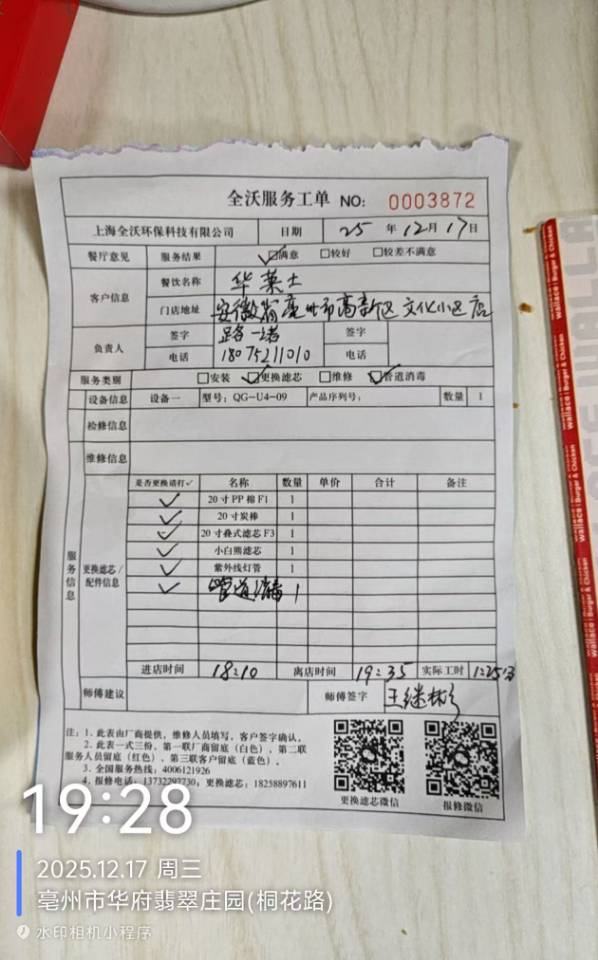 全沃服务工单 NO: 0003872
上海全沃环保科技有限公司 日期 25 年 12 月 17 日
餐厅意见 服务结果 ☑满意 □较好 □较差不满意
客户信息 餐饮名称 华莱士
门店地址 安徽省亳州市高新区文化小区店
负责人 签字 路一诺 签字
电话 18075211010 电话
服务类别 □安装 ☑更换滤芯 □维修 ☑管道消毒
设备信息 设备一 型号: QG-U4-09 产品序列号: 数量 1
检修信息
维修信息
服务信息
更换滤芯/配件信息
是否更换请打✓ 名称 数量 单价 合计 备注
✓ 20寸PP棉F1 1
✓ 20寸炭棒 1
✓ 20寸叠式滤芯F3 1
✓ 小白熊滤芯 1
✓ 紫外线灯管 1
✓ 管道消毒 1
进店时间 18:10 离店时间 19:35 实际工时 1:25分
师傅建议 师傅签字 王继彬
注: 1. 此表由厂商提供, 维修人员填写, 客户签字确认。
2. 此表一式三份, 第一联厂商留底（白色）, 第二联
服务人员留底（红色）, 第三联客户留底（蓝色）。
3. 全国服务热线: 4006121926
4. 报修电话: 13732293730, 更换滤芯: 18258897611
更换滤芯微信 报修微信
19:28
2025.12.17 周三
亳州市华府翡翠庄园(桐花路)
水印相机小程序
Wallace | Burger & Chicken
Wallace | Burger & Chicken
Wallace | Burger & Chicken
WALLA